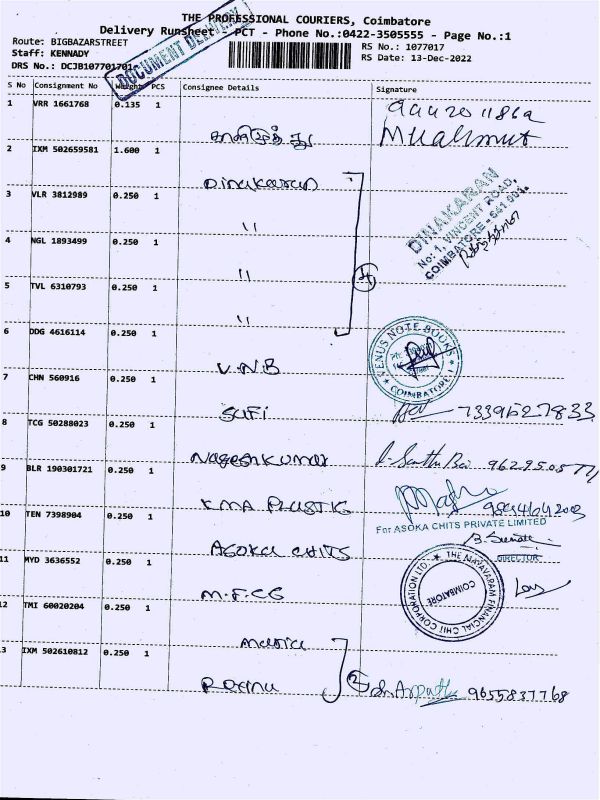 THE PROFESSIONAL COURIERS, Coimbatore
Delivery Runsheet - PCT - Phone No.:0422-3505555 - Page No.:1
Route: BIGBAZARSTREET
Staff: KENNADY
DRS No.: DCJB107701701
RS No.: 1077017
RS Date: 13-Dec-2022
DOCUMENT DELIVERY
S No Consignment No Weight PCS Consignee Details Signature
1 VRR 1661768 0.135 1
காளிமுத்து
2 IXM 502659581 1.600 1
Dinakaran
3 VLR 3812989 0.250 1
"
4 NGL 1893499 0.250 1
"
5 TVL 6310793 0.250 1
"
4
DINAKARAN
No: 1, VINCENT ROAD,
COIMBATORE - 641 001.
6 DDG 4616114 0.250 1
V.N.B
VENUS NOTE BOOKS
COIMBATORE-1
7 CHN 560916 0.250 1
SUFI 7339627833
8 TCG 50288023 0.250 1
Nageshkumar
9 BLR 190301721 0.250 1
KMA PLASTIC
10 TEN 7398904 0.250 1
For ASOKA CHITS PRIVATE LIMITED
DIRECTOR
ASOKA CHITS
11 MYD 3636552 0.250 1
M.F.CG
THE MAYAVARAM FINANCIAL CHIT CORPORATION LTD.
COIMBATORE
12 TMI 60020204 0.250 1
13 IXM 502610812 0.250 1
2
9655837768